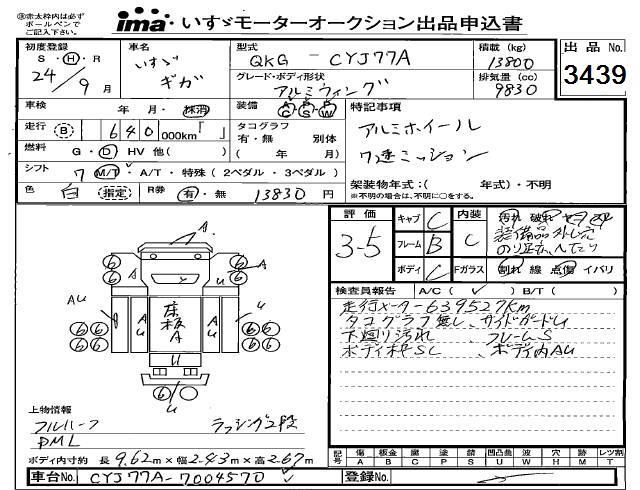 ㊟赤太枠内は必ず
ボールペンで
ご記入下さい。
ima いすゞモーターオークション出品申込書
初度登録 S・Ⓗ・R 24年 9月
車名 いすゞ ギガ
型式 QKG - CYJ77A
積載(kg) 13800
出品No. 3439
グレード・ボディ形状 アルミウィング
排気量(cc) 9830
車検 年 月・抹消
装備 AC PS PW
特記事項
走行 (B) 640 000km「 」
タコグラフ 有・無 別体
( 年 月)
アルミホイール
燃料 G・Ⓓ HV 他( )
7速ミッション
シフト 7 M/T・A/T・特殊(2ペダル・3ペダル)
架装物年式:( 年式)・不明
※不明の場合は、不明に○をする。
色 白 指定 R券 有・無 13830円
評価 3-5
キャブ C
フレーム B
ボディ C
内装 C
Fガラス
汚れ 破れ
装備品外し穴
割れ 線 点傷 イバリ
検査員報告 A/C( ✓ ) B/T( )
走行メーター639527km
タコグラフ無し、サイドガードU
下廻り汚れ、フレームS
ボディ枠SC、ボディ内AU
A
A
AU
U
床板A
A
U
U
U
U
6 6 6 6 6 6 6 6 6 6
上物情報
フルハーフ ラッシング2段
DML
ボディ内寸約 長9.62m×幅2.43m×高2.67m
記号 傷A 板金B 腐C 塗P 錆S 凹凸曲U 波W 穴H 跡M レツ割T
車台No. CYJ77A-7004570
登録No.